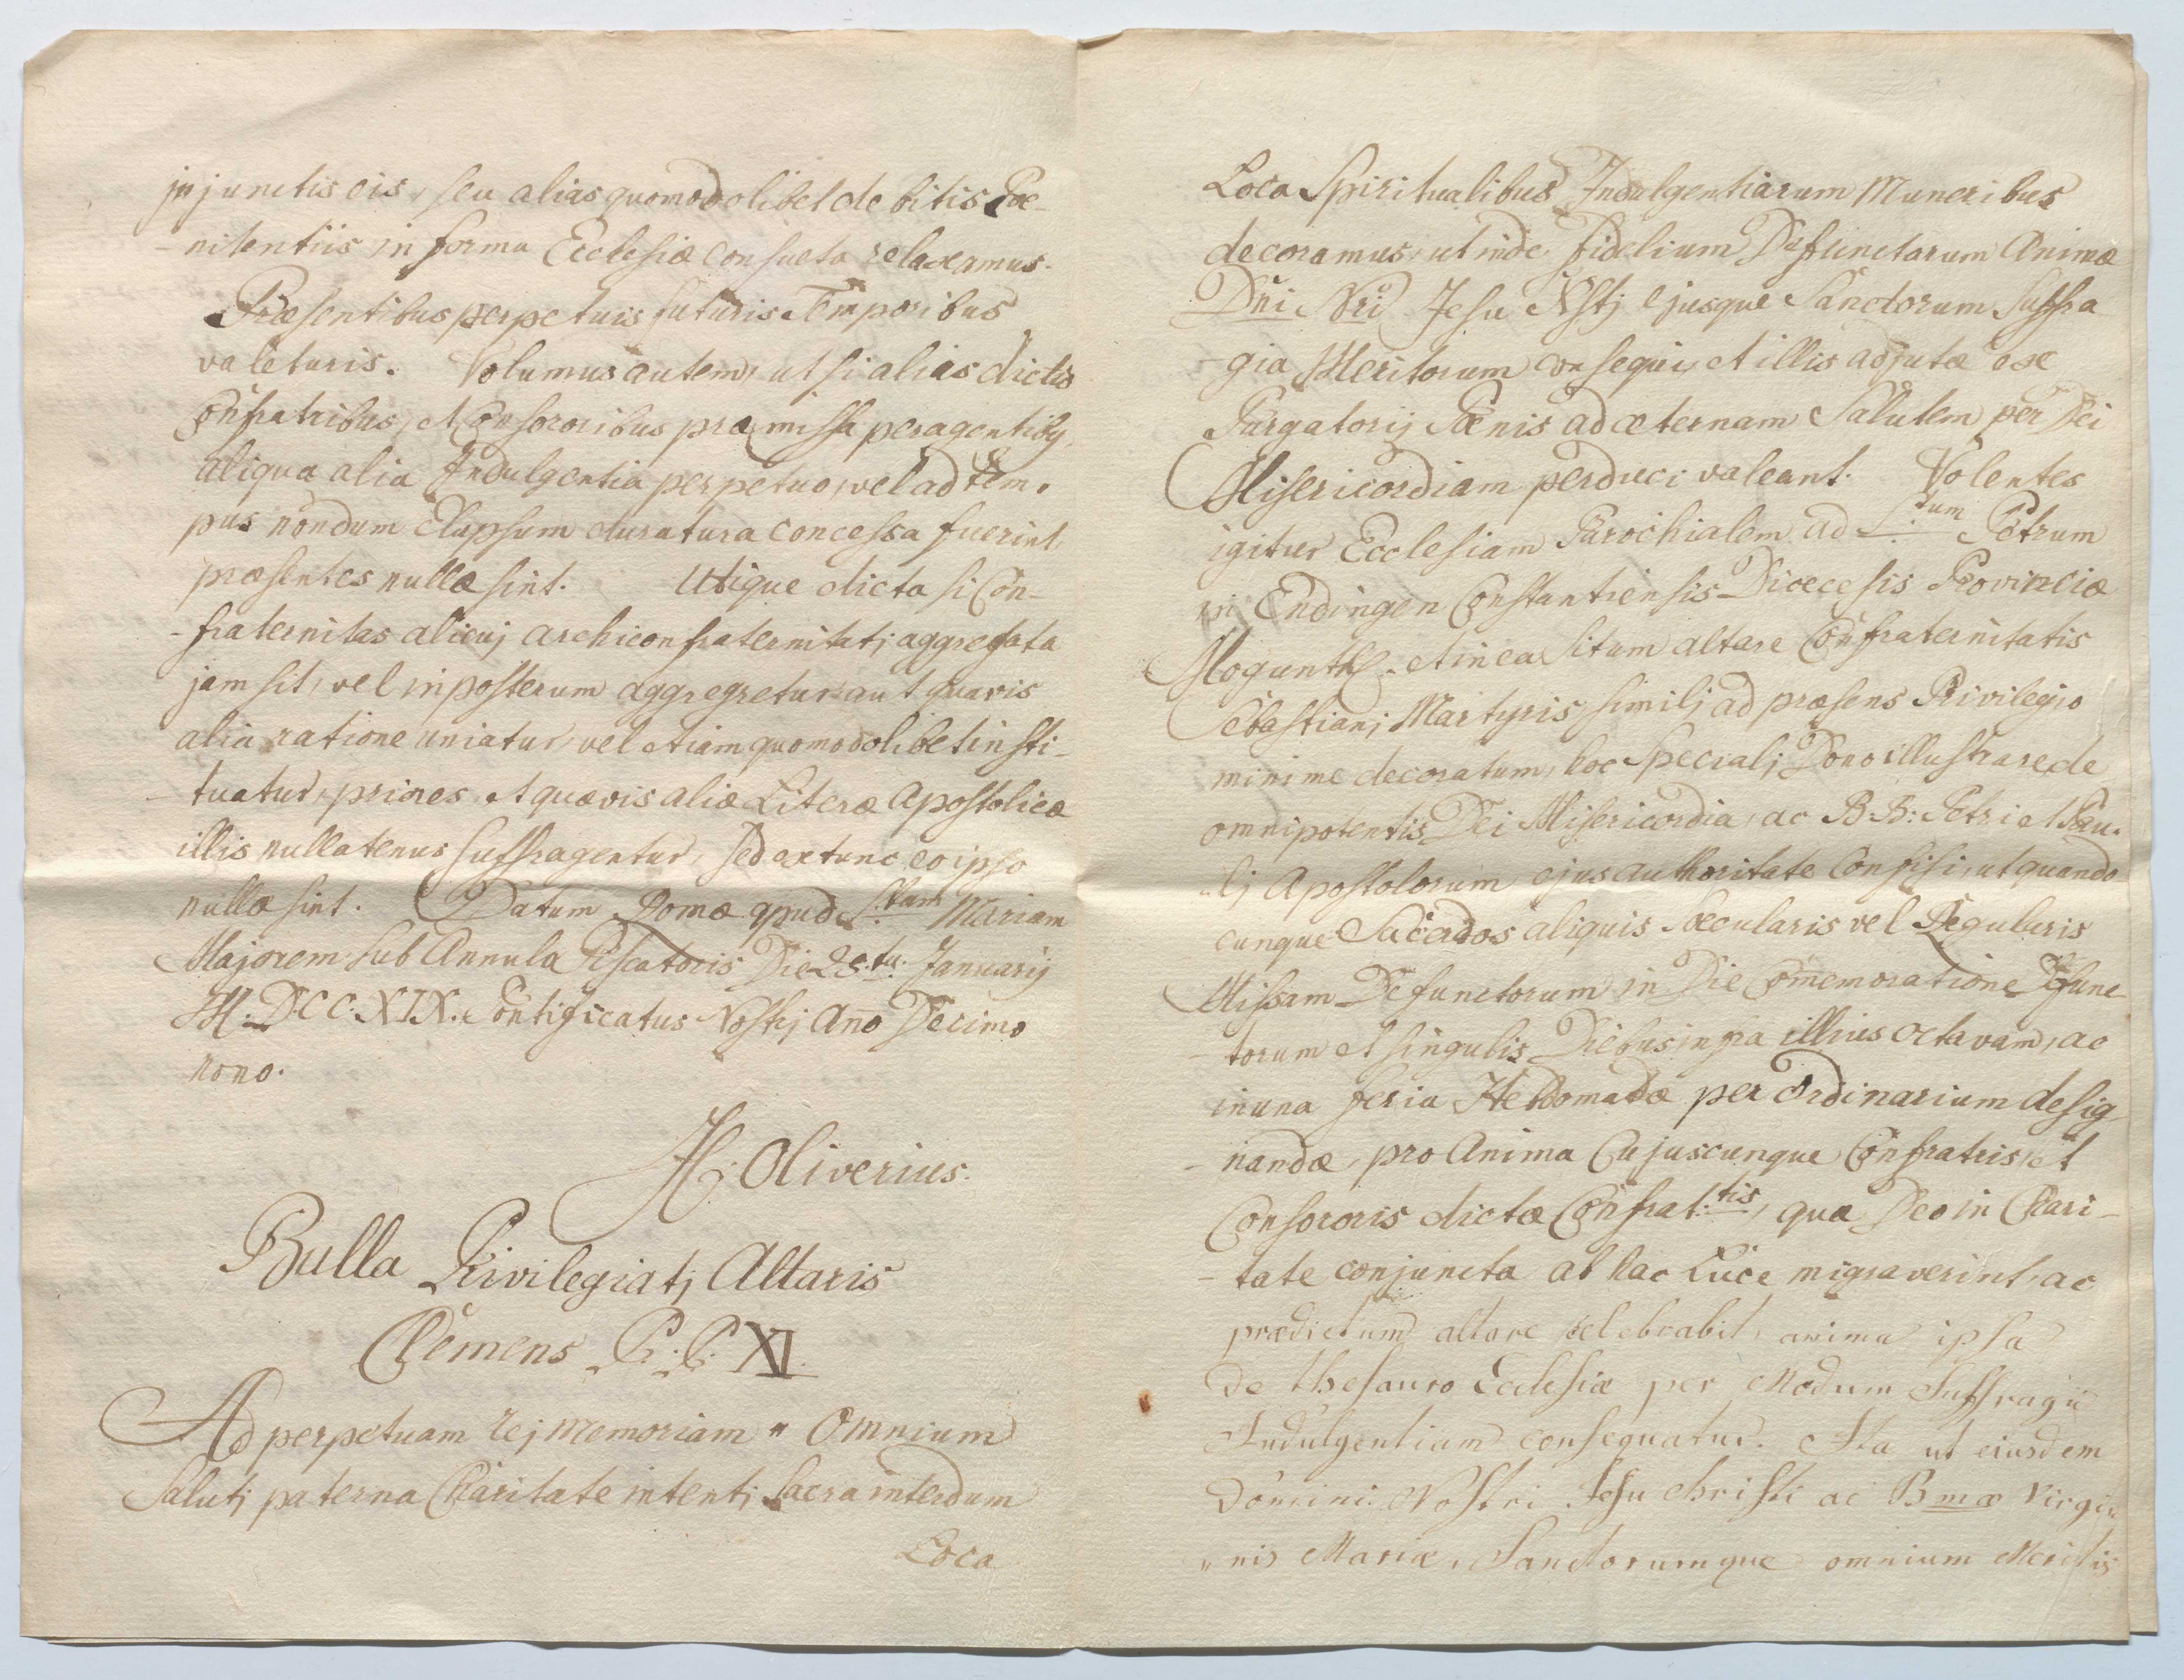 injunctis eis, seu alias quomodolibet debitis Poe-
-nitentiis in forma Ecclesiæ consueta relaxamus.
Præsentibus perpetuis futuris Temporibus
valeturis. Volumus autem, ut si alias dictis
Confratribus, et Consororibus præmissa peragentibg,
aliqua alia Indulgentia perpetuo, vel ad tem.
pus nondum Elapsum duratura concessa fuerint,
præsentes nullæ sint. Utique dicta si Con-
-fraternitas alicuj archiconfraternitatj aggregata
jam sit, vel in posterum aggregretur aut quavis
alia ratione uniatur, vel etiam quomodolibet insti-
-tuatur, priores et quævis aliæ Literæ Apostolicæ
illis nullatenus suffragentur, sed ex tunc eo ipso
nullæ sint. Datum Romæ apud S.tam Mariam
Majorem sub Annula Piscatoris Die 25.ta Januarij
M.DCC.XIX. Pontificatus Nostrj Año Decimo
nono.
H. Oliverius.
Bulla Privilegiatj Altaris
Clemens P.P. XI.
Ad perpetuam rej memoriam " Omnium
Salutj paterna Charitate intentj Sacra interdum
Loca
Loca Spiritualibus Indulgentiarum Muneribus
decoramus, ut inde fidelium Defunctarum Animæ
Dñi Nri Jesu Xstj ejusque Sanctorum Suffra
-gia Meritorum consequi, et illis adjutæ ex
Purgatorij Pœnis ad æternam Salutem per Dei
Misericordiam perduci valeant. Volentes
igitur Ecclesiam Parochialem ad S.tum Petrum
in Endingen Constantiensis Diœcesis Provinciæ
Mogunt. et in ea Situm altare Confraternitatis
Sebastianj Martyris similj ad præsens Privilegio
minime decoratum, hoc Specialj Dono illustrare de
omnipotentis Dei Misericordia, ac B.B: Petri et Pau.
-lj Apostolorum ejus authoritate Confisi, ut quando-
cunque Sacerdos aliquis Sæcularis vel Regularis
Missam Defunctorum in Die Comemoratione Defunc-
-torum et singulis Diebus infra illius octavam, ac
in una feria Hebdomadæ per Ordinarium desig-
-nandæ, pro Anima Cujuscunque Confratris, et
Consororis dictæ Confrat.tis, qua Deo in Chari-
-tate conjuncta ab hac Luce migraverint, ac
prædictum altare celebrabit, anima ipsa
de thesauro Ecclesiæ per Modum Suffragii
Indulgentiam consequatur. Ita ut eiusdem
Domini Nostri Jesu Christi ac Bmæ Virgi-
"nis Mariæ, Sanctorumque omnium Meritis